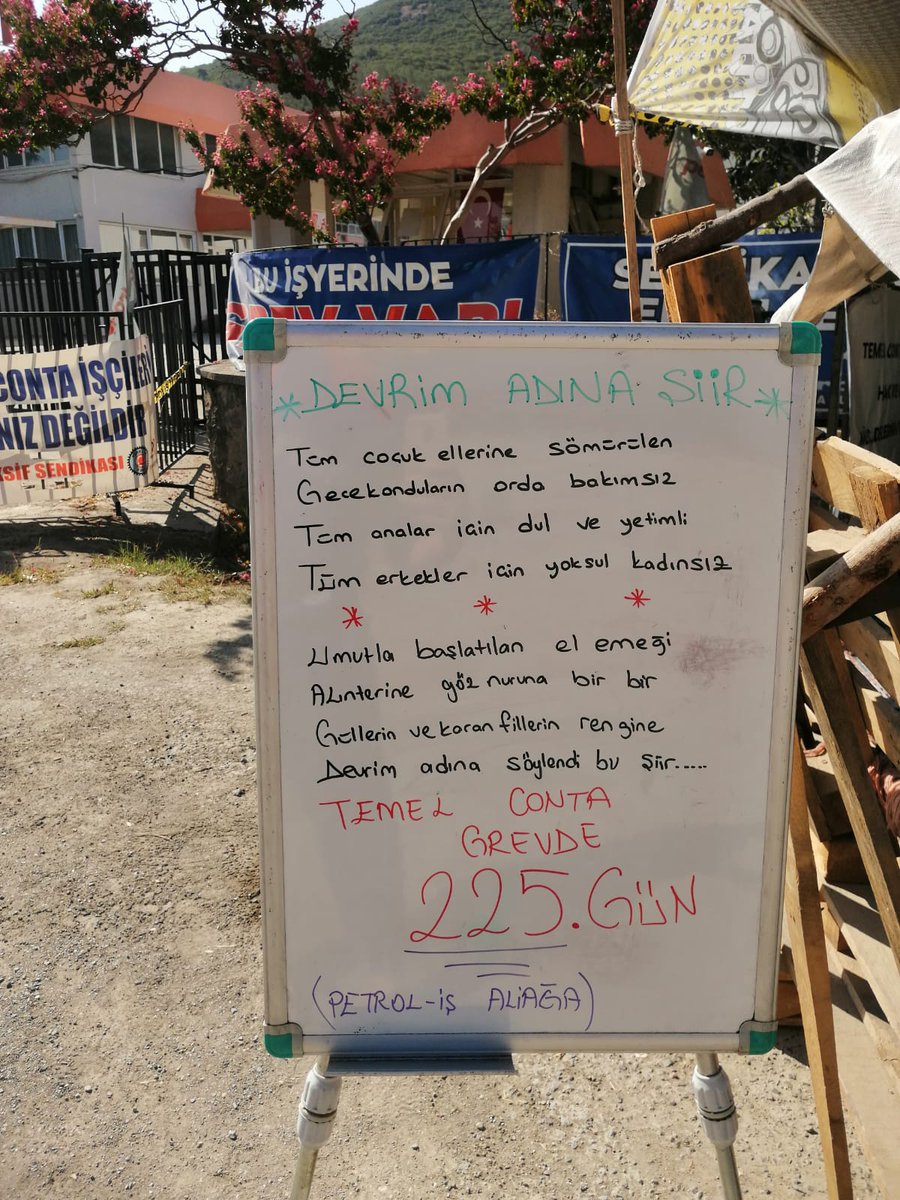 BU İŞYERİNDE
GREV VAR!
CONTA İŞÇİLERİ
DEĞİLDİR
SENDİKASI
*DEVRİM ADINA ŞİİR*
Tüm çocuk ellerine sömürülen
Gecekonduların orda bakımsız
Tüm analar için dul ve yetimli
Tüm erkekler için yoksul kadınsız
* * *
Umutla başlatılan el emeği
Alınterine göz nuruna bir bir
Güllerin ve karanfillerin rengine
Devrim adına söylendi bu şiir.....
TEMEL CONTA
GREVDE
225.GÜN
(PETROL-İŞ ALİAĞA)